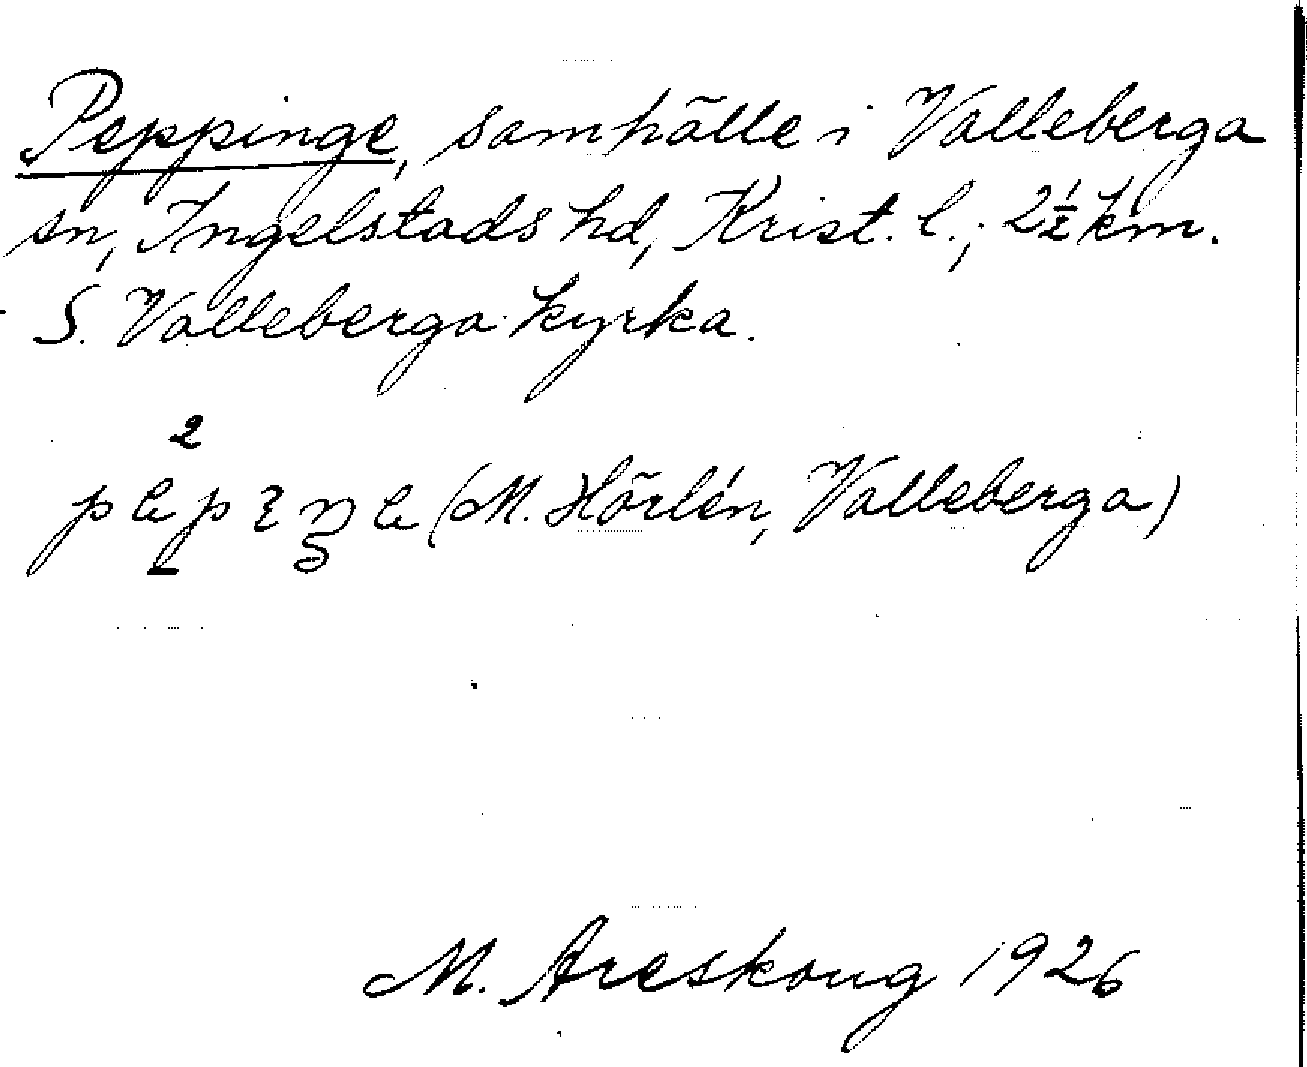 Peppinge, samhälle i Valleberga
sn, Ingelstads hd, Krist. l.; 2½ km.
S. Valleberga kyrka.
(M. Hörlén, Valleberga)
M. Areskoug 1926